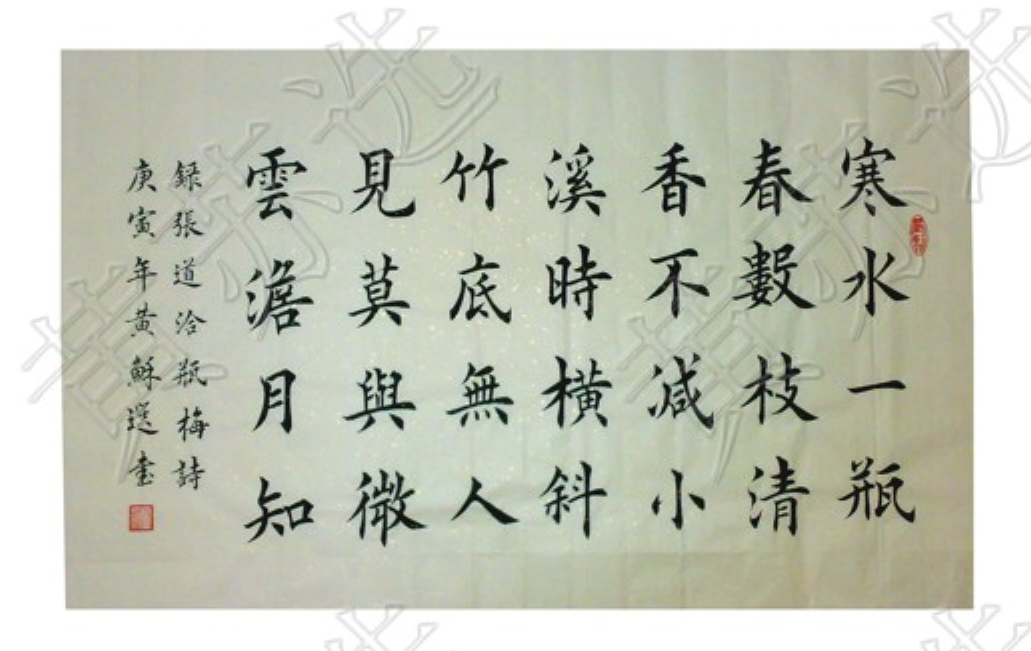 寒水一瓶
春數枝清
香不減小
溪時橫斜
竹底無人
見莫與微
雲澹月知
錄張道洽瓶梅詩
庚寅年黃穌選書